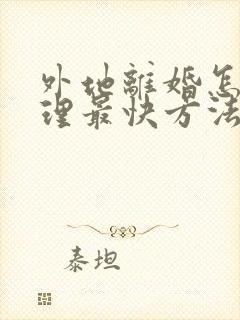 外地離婚怎
理最快方法
泰坦